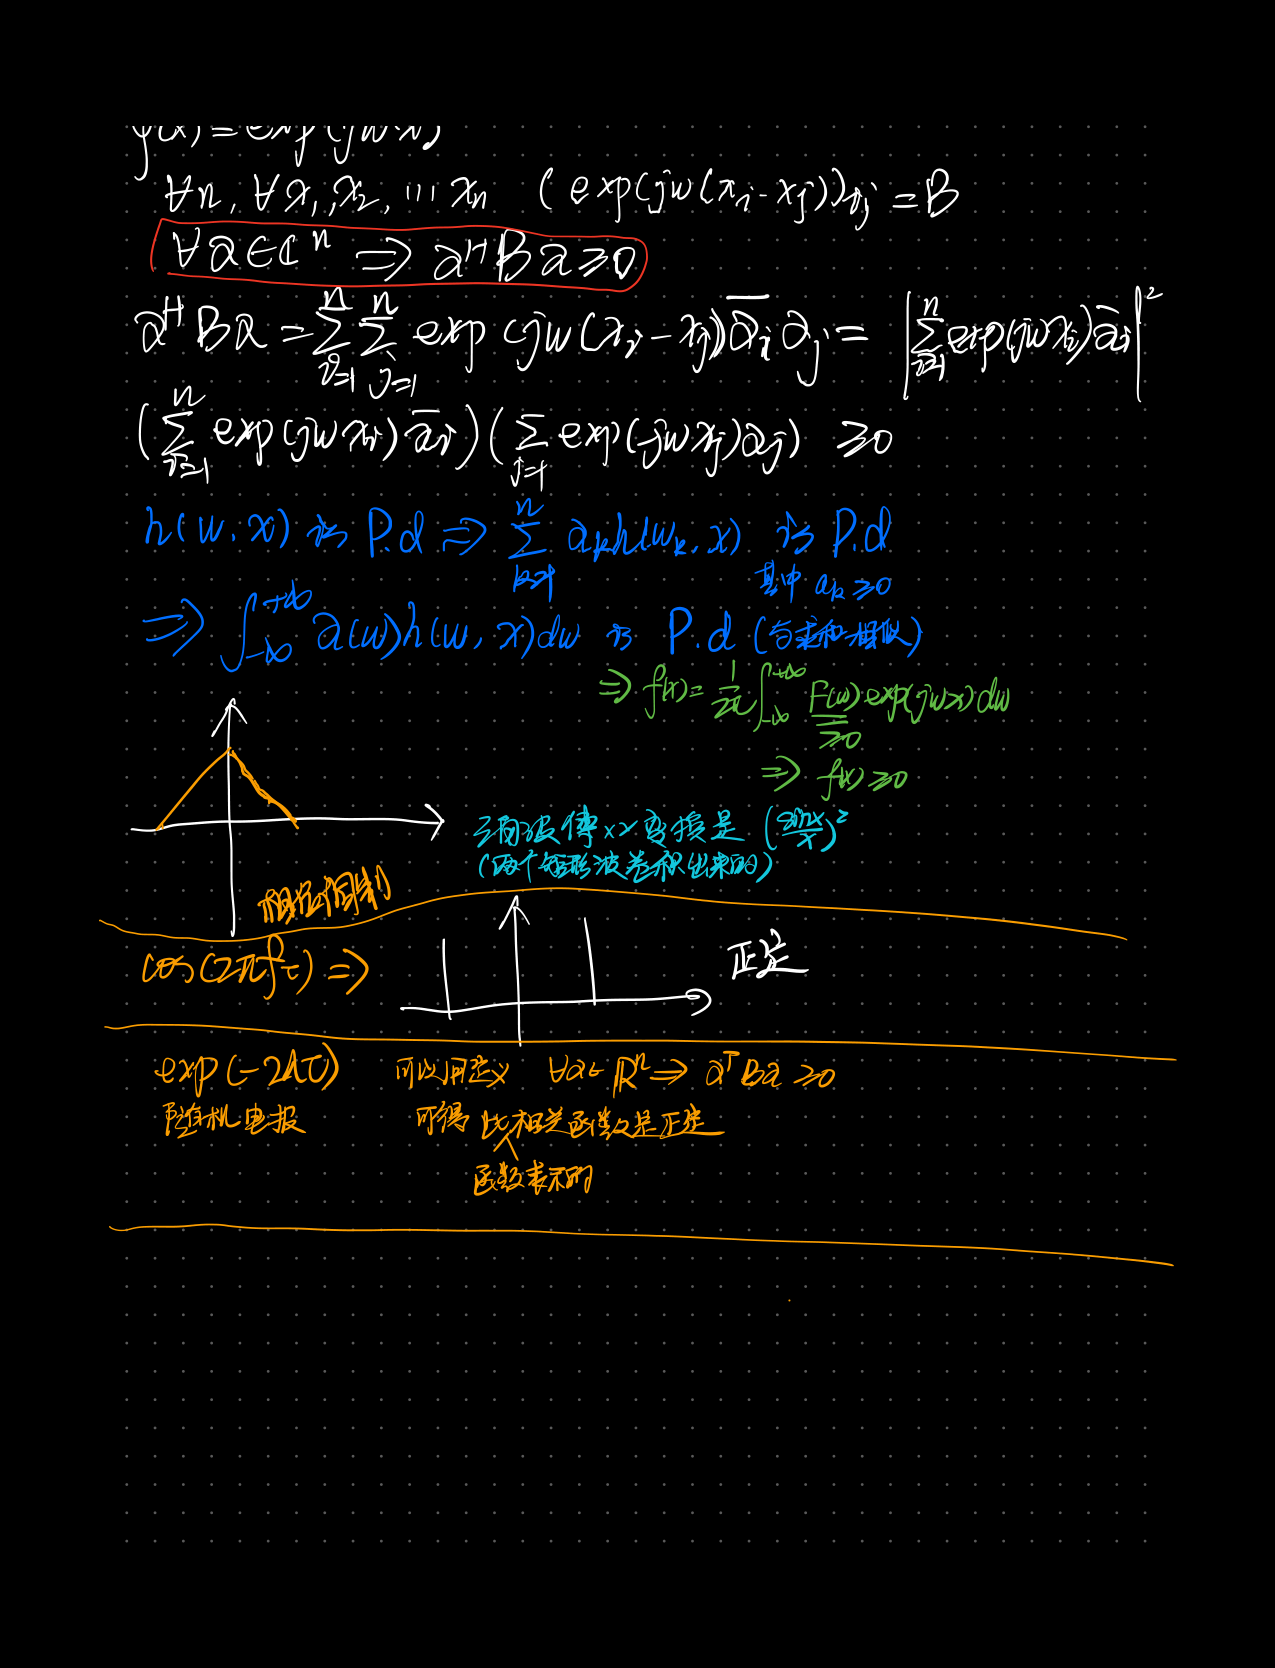 f(x) = exp(jwx)
∀n, ∀x₁, x₂, ... xₙ (exp(jw(xᵢ - xⱼ))ᵢⱼ = B
∀a ∈ ℂⁿ ⇒ aᴴBa ≥ 0
aᴴBa = ∑ᵢ₌₁ⁿ ∑ⱼ₌₁ⁿ exp(jw(xᵢ - xⱼ)) a̅ᵢ aⱼ = |∑ᵢ₌₁ⁿ exp(jwxᵢ) a̅ᵢ|²
(∑ᵢ₌₁ⁿ exp(jwxᵢ) a̅ᵢ)(∑ⱼ₌₁ exp(-jwxⱼ)aⱼ) ≥ 0
h(w, x) is P.d ⇒ ∑ₖ₌₁ⁿ aₖh(wₖ, x) is P.d
其中 aₖ ≥ 0
⇒ ∫₋∞⁺∞ a(w)h(w, x)dw is P.d (与求和相似)
⇒ f(x) = 1/2π ∫₋∞⁺∞ F(w) exp(jwx) dw
≥0
⇒ f(x) ≥ 0
三角波傅××变换是 (sinx/x)²
(两个矩形波卷积出来的)
相位调制
cos(2πfτ) ⇒
正定
exp(-2λτ) 可以用定义 ∀a ∈ ℝⁿ ⇒ aᵀBa ≥ 0
随机电报 可得 此相关函数是正定
函数表示的